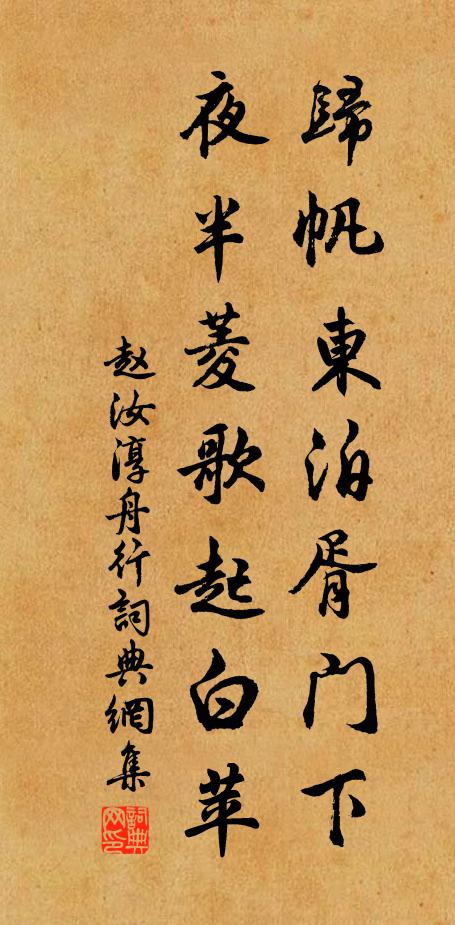 歸帆東泊胥门下
夜半菱歌起白苹
赵汝淳舟行詞典網集
詞典网印